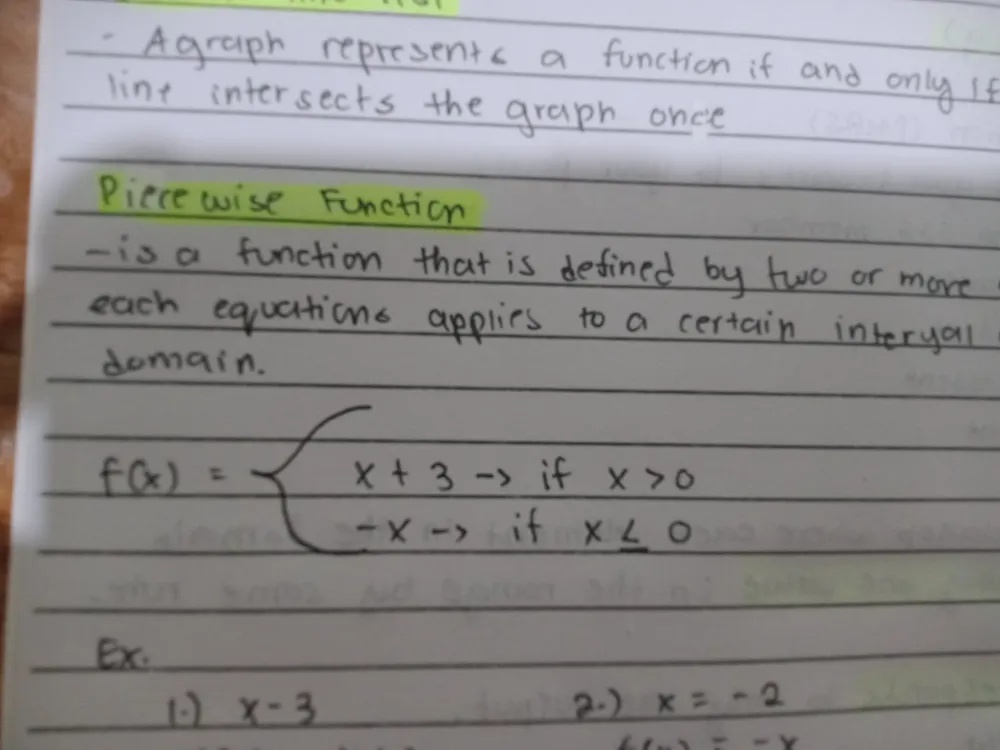 - A graph represents a function if and only if
line intersects the graph once
Piecewise Function
- is a function that is defined by two or more
each equations applies to a certain interval
domain.
f(x) = { x + 3 -> if x > 0
-x -> if x ≤ 0
Ex.
1.) x - 3 2.) x = -2
f(x) = -x